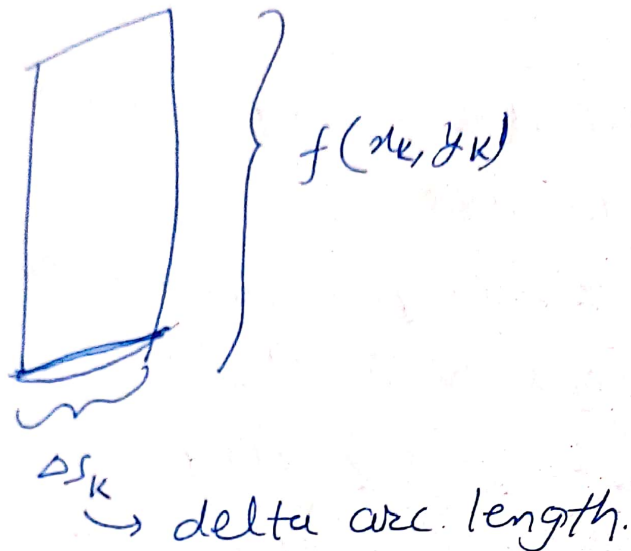 f(xₖ, yₖ)
ΔSₖ
↳ delta arc length.